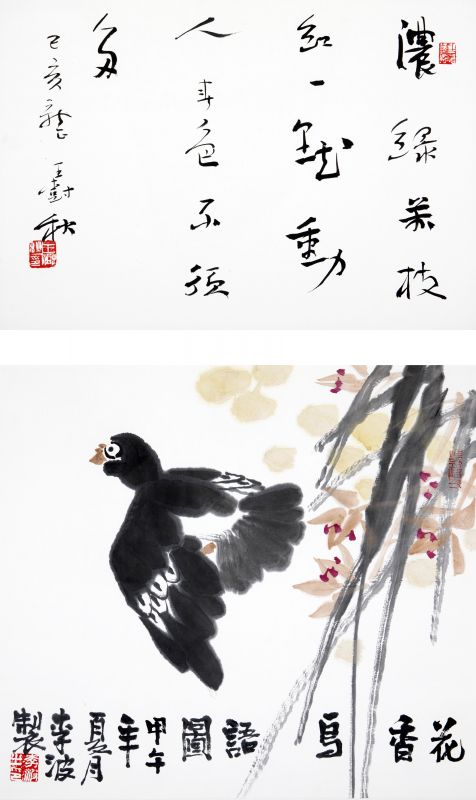 濃綠萬枝
紅一點動
人春色不須
多
己亥 王樹秋
花香鳥語圖 甲午年夏月李波製